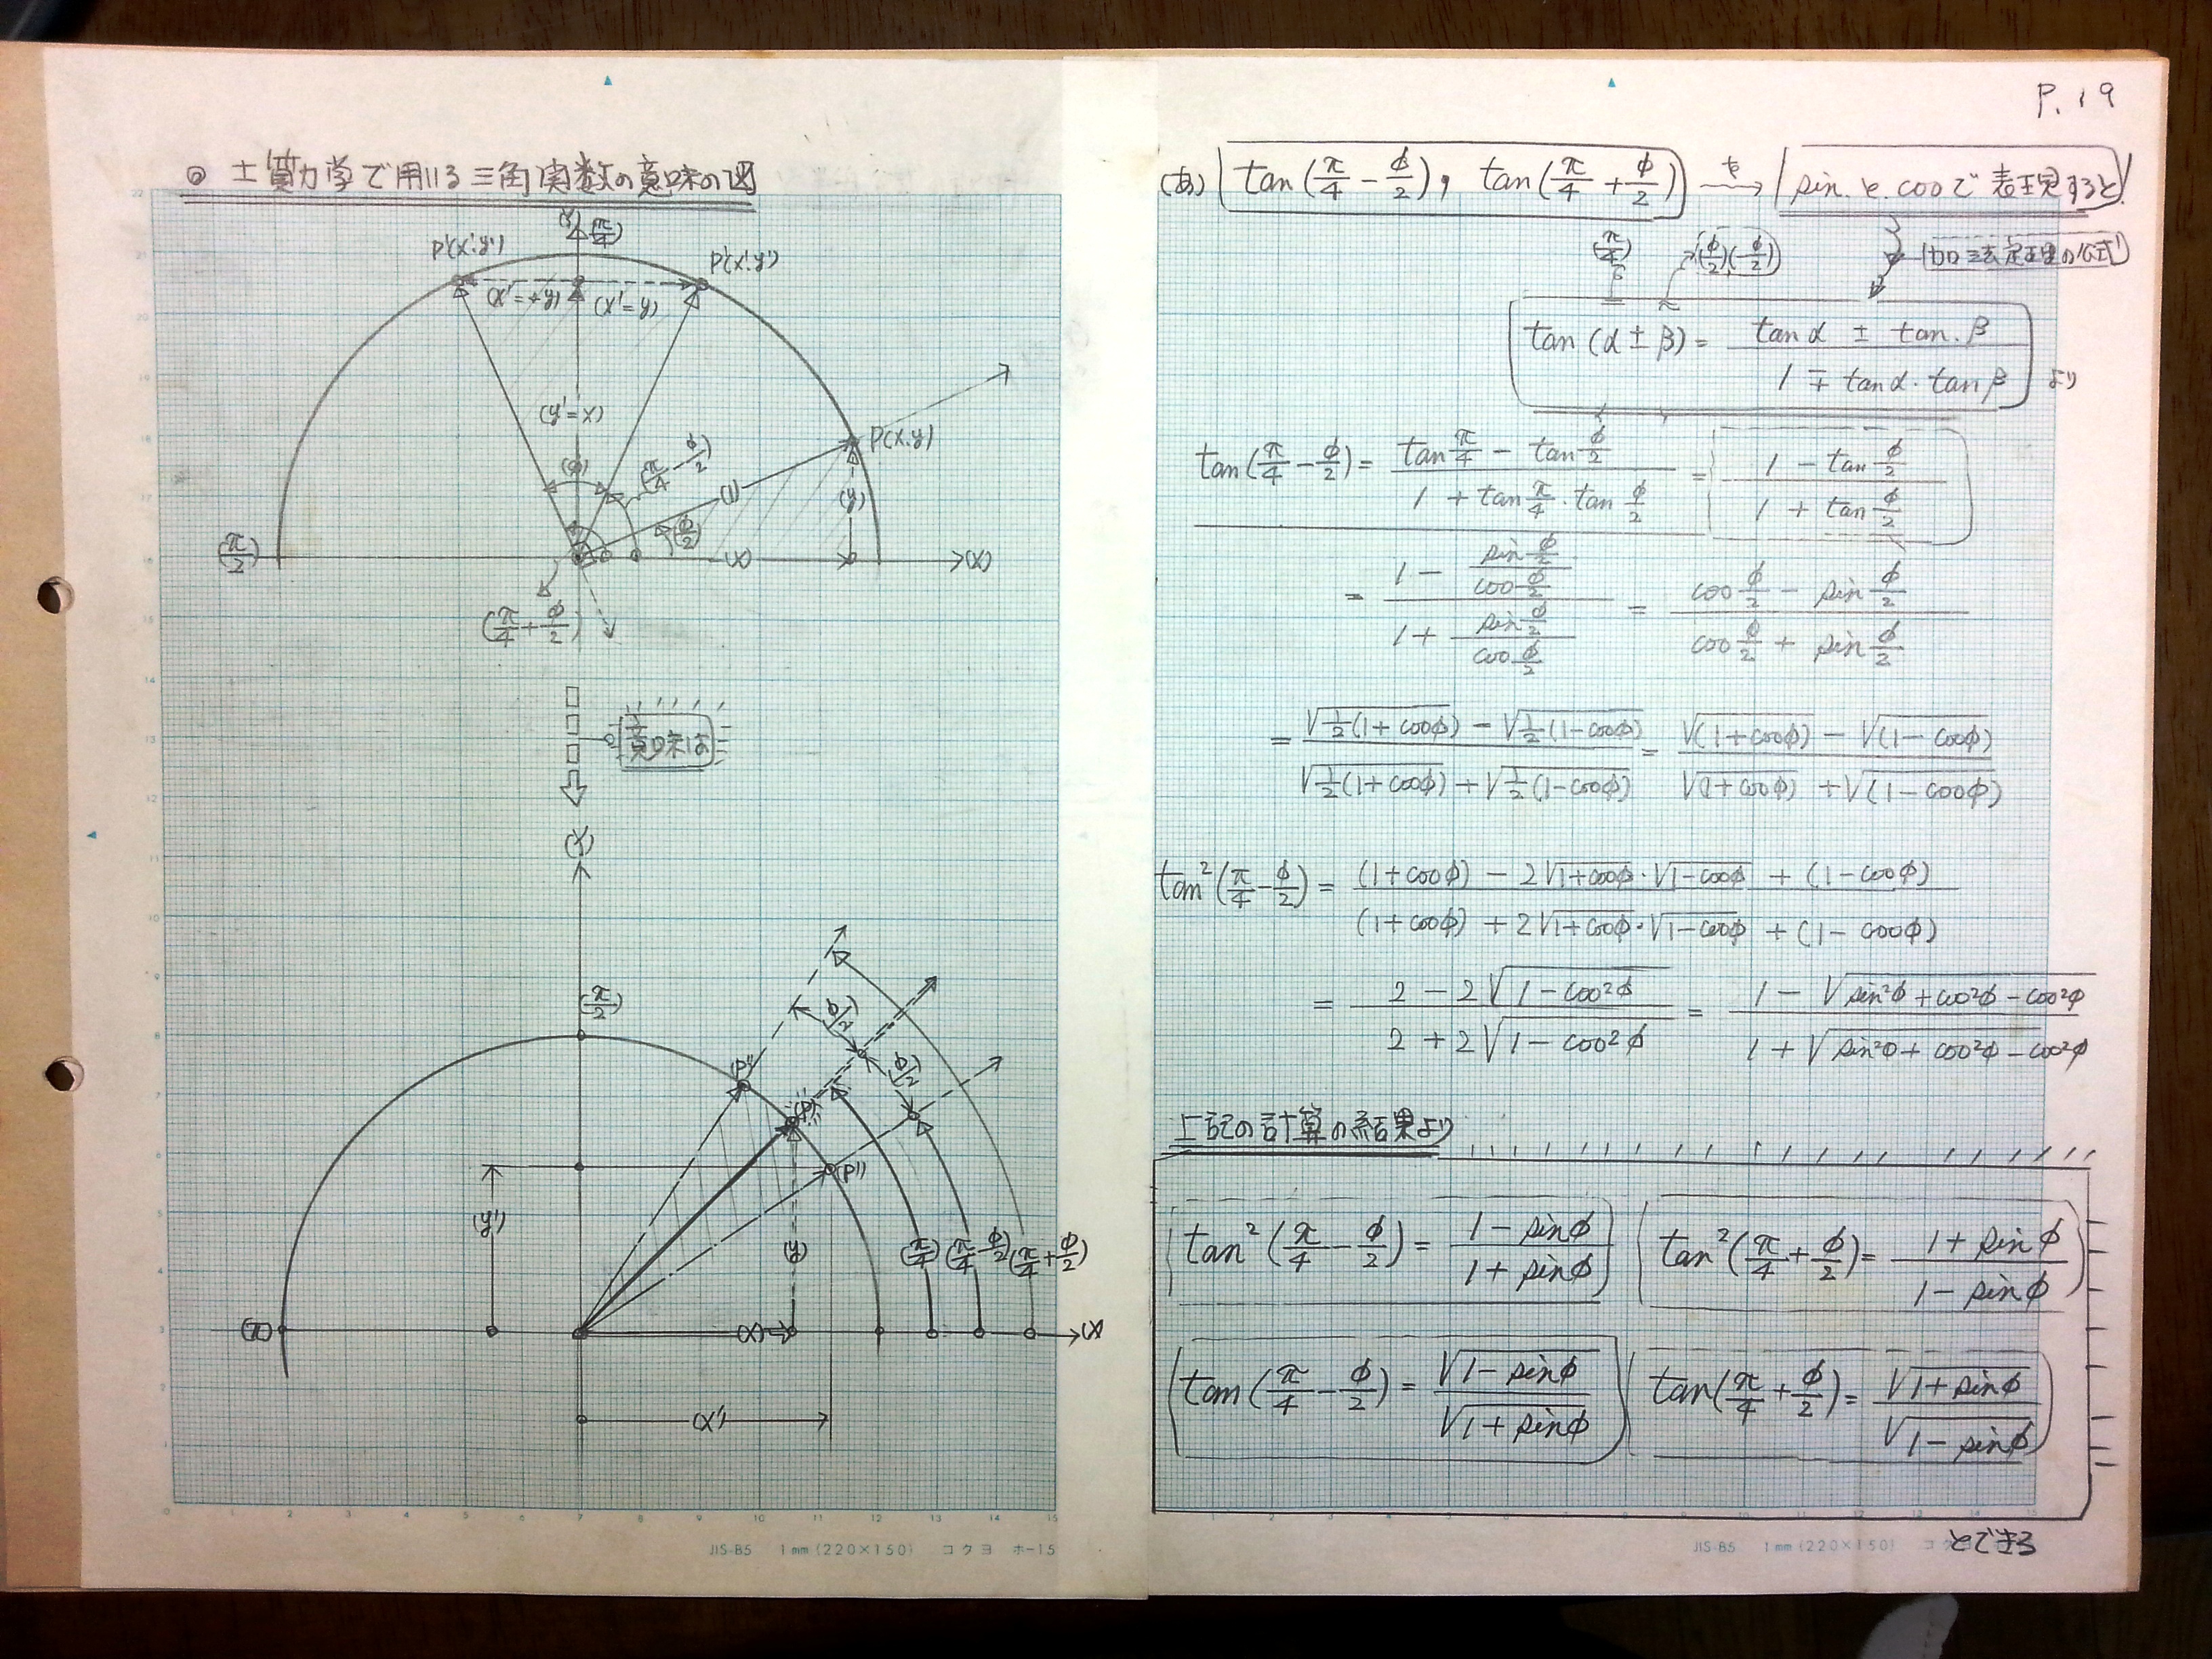 ◎ 土質力学で用いる三角実数の意味の図
(Y)
(π/4)
P'(x'.y')
P'(x'.y')
(x'=+y)
(x'=y)
(y'=x)
P(x.y)
(φ)
(π/4 - φ/2)
(1)
(y)
(φ/2)
(π/2)
(x)
(X)
(π/4 + φ/2)
意味は
(Y)
(π/2)
(φ/2)
(φ/2)
(P'')
(P)
(P')
(y')
(y)
(π/4) (π/4 - φ/2) (π/4 + φ/2)
(π)
(x)
(X)
(x')
JIS-B5 1mm (220×150) コクヨ ホ-15
P. 19
(あ) tan(π/4 - φ/2), tan(π/4 + φ/2) を → sin. と cosで表現すると
(π/4) (φ/2)(-φ/2) 加法定理の公式
tan(α ± β) = (tanα ± tan.β)/(1 ∓ tanα・tanβ) より
tan(π/4 - φ/2) = (tan π/4 - tan φ/2)/(1 + tan π/4・tan φ/2) = (1 - tan φ/2)/(1 + tan φ/2)
= (1 - (sin φ/2)/(cos φ/2))/(1 + (sin φ/2)/(cos φ/2)) = (cos φ/2 - sin φ/2)/(cos φ/2 + sin φ/2)
= (√½(1+cosφ) - √½(1-cosφ))/(√½(1+cosφ) + √½(1-cosφ)) = (√(1+cosφ) - √(1-cosφ))/(√(1+cosφ) + √(1-cosφ))
tan²(π/4 - φ/2) = ((1+cosφ) - 2√1+cosφ・√1-cosφ + (1-cosφ))/((1+cosφ) + 2√1+cosφ・√1-cosφ + (1-cosφ))
= (2 - 2√1-cos²φ)/(2 + 2√1-cos²φ) = (1 - √sin²φ+cos²φ-cos²φ)/(1 + √sin²φ+cos²φ-cos²φ)
上記の計算の結果より
tan²(π/4 - φ/2) = (1 - sinφ)/(1 + sinφ) tan²(π/4 + φ/2) = (1 + sinφ)/(1 - sinφ)
tan(π/4 - φ/2) = √1-sinφ/√1+sinφ tan(π/4 + φ/2) = √1+sinφ/√1-sinφ
とできる
JIS-B5 1mm (220×150)